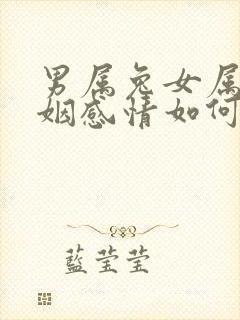 男属兔女属
姻感情如何
藍莹莹